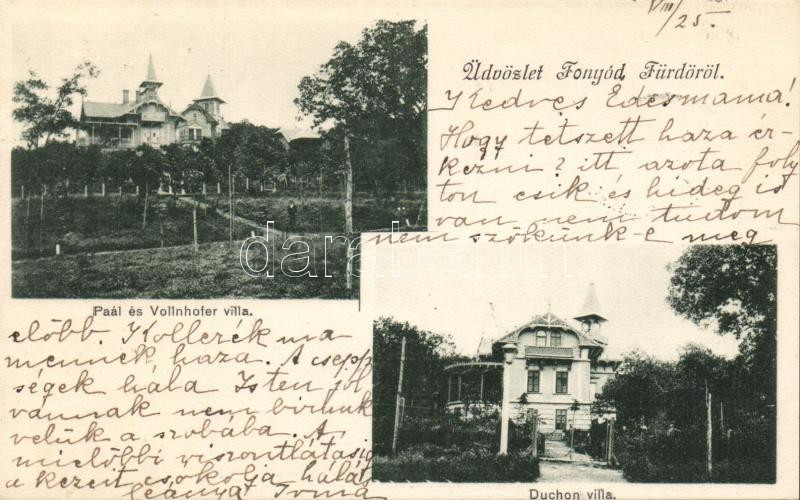 VIII/25.
Üdvözlet Fonyód Fürdöröl.
Kedves Édesmama!
Hogy tetszett haza ér-
kezni? itt azota foly
ton esik és hideg is
van nem tudom
nem szökünk-e meg
Paál és Vollnhofer villa.
előbb. Kollerék ma
mennek haza. A csepp
ségek hála Isten jól
vannak nem birunk
velük a szobába. A
mielőbbi viszontlátásig
a kezeit csokolja hálás
leánya
Duchon villa.
darabanth.com